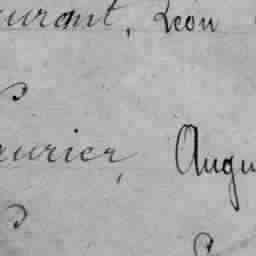 aurant, Léon
aurier, Augu